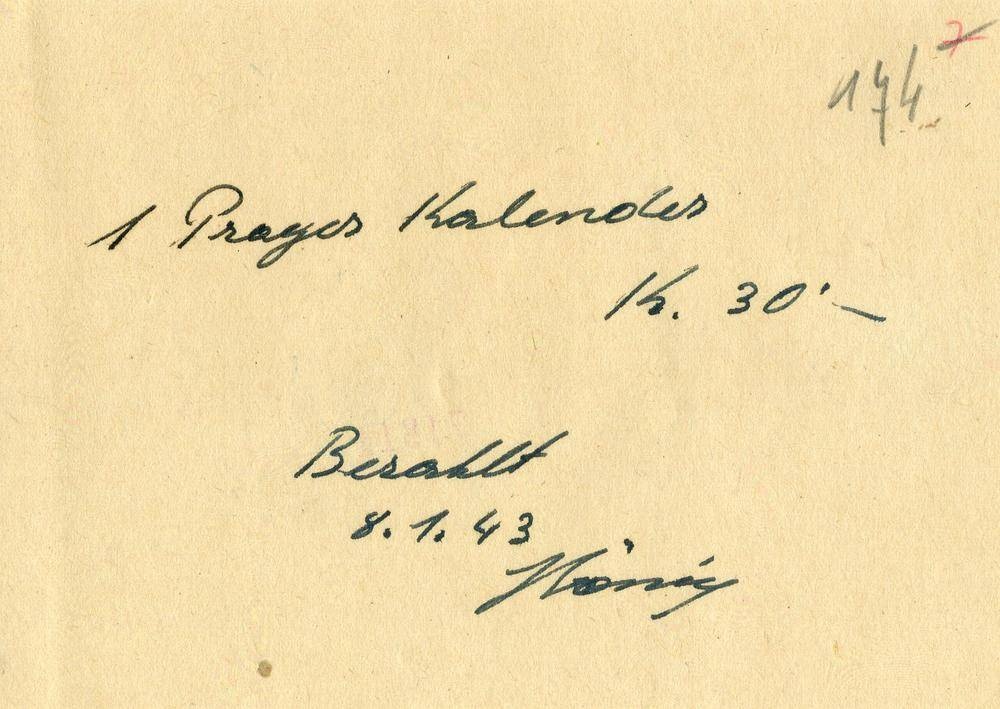 7
174
1 Prager Kalender
K. 30'—
Bezahlt
8.1.43